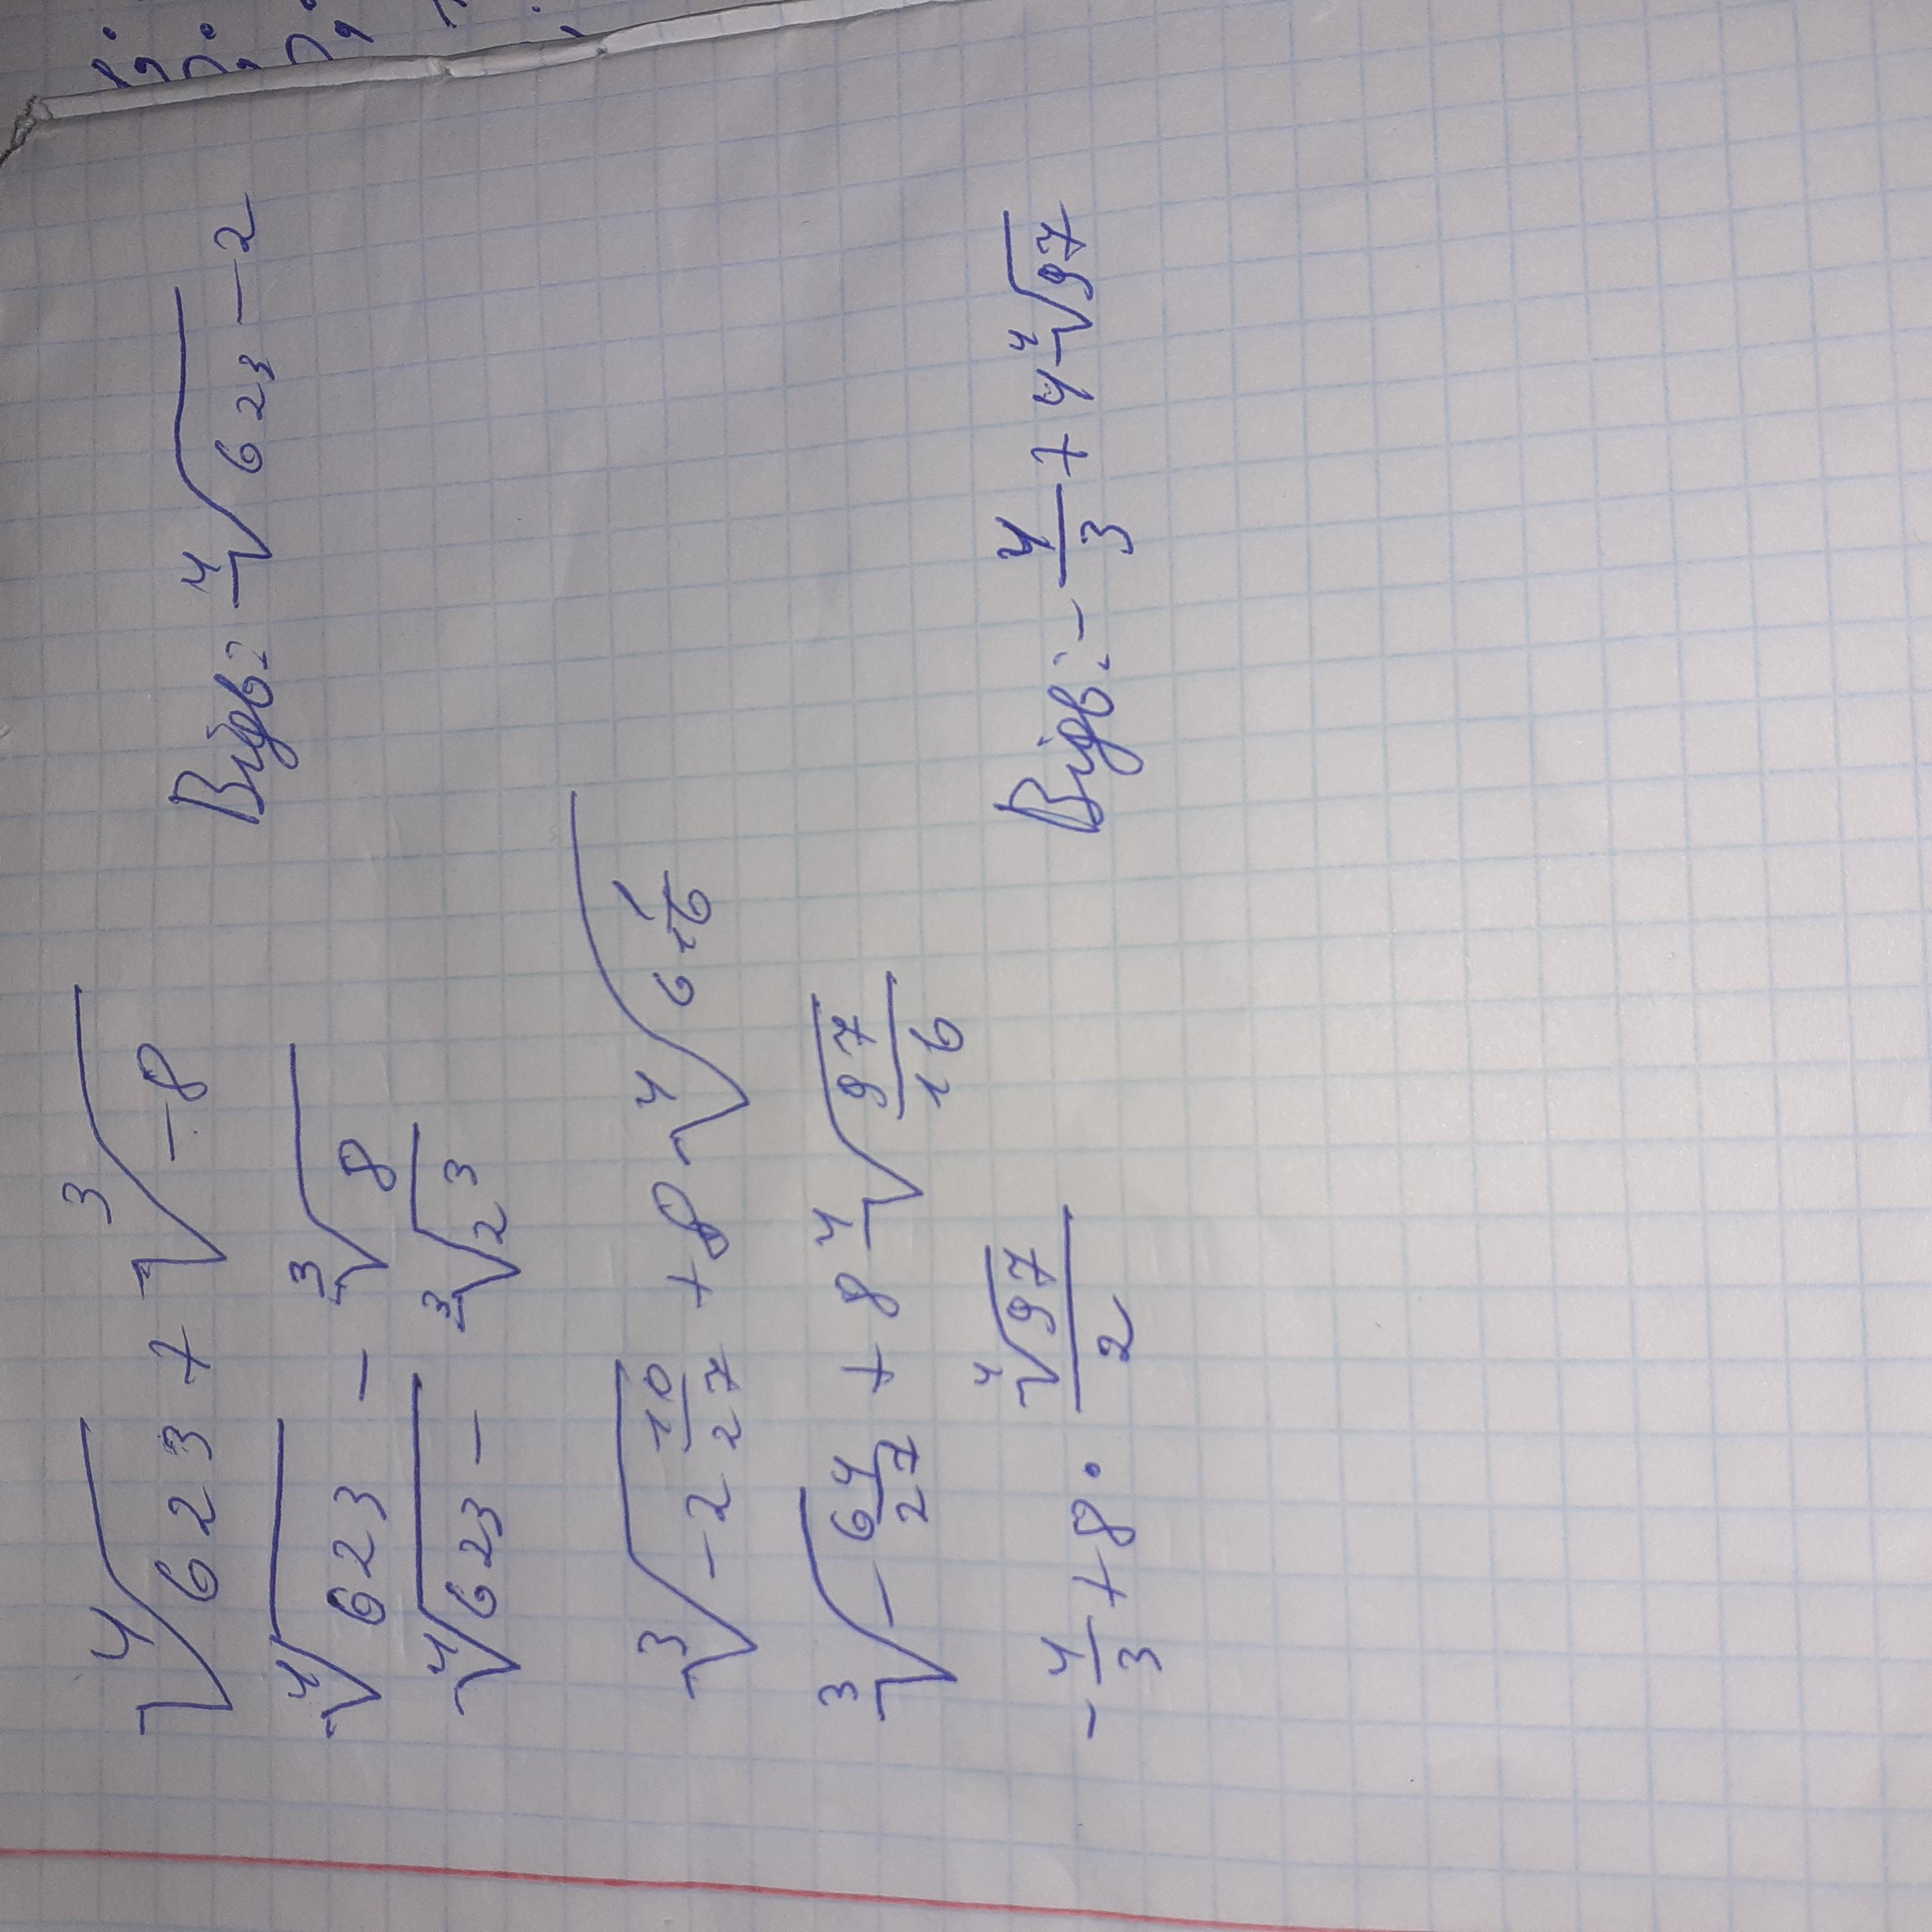 ⁴√623 + ³√-8
⁴√623 - ³√8
⁴√623 - ³√2³
Відв: ⁴√623 - 2
³√-2 10/27 + 8 ⁴√6 1/16
³√-64/27 + 8 ⁴√97/16
-4/3 + 8 · ⁴√97/2
Відв: -4/3 + 4 ⁴√97